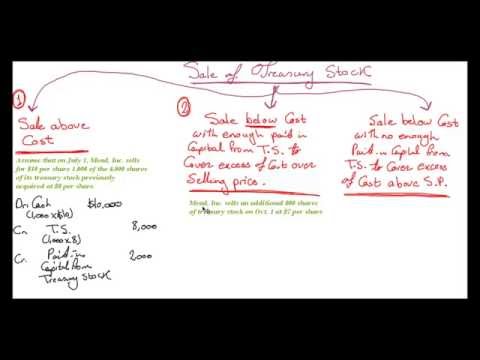 Sale of Treasury Stock
1
Sale above
Cost
Assume that on July 1, Mead, Inc. sells
for $10 per share 1,000 of the 4,000 shares
of its treasury stock previously
acquired at $8 per share
Dr. Cash $10,000
(1,000 x $10)
Cr. T.S. 8,000
(1,000 x 8)
Cr. Paid-in 2000
Capital from
Treasury Stock
2
Sale below Cost
with enough paid in
Capital from T.S. to
Cover excess of Cost over
Selling price.
Mead, Inc. sells an additional 800 shares
of treasury stock on Oct. 1 at $7 per share
Sale below Cost
with no enough
Paid-in Capital from
T.S. to Cover excess
of Cost above S.P.